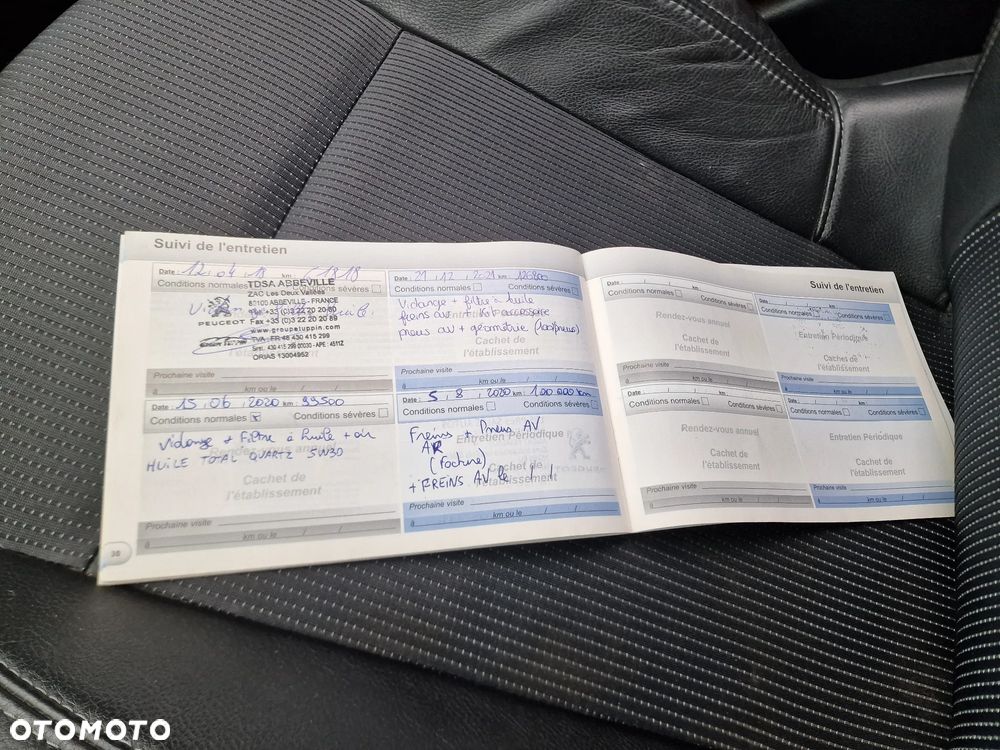 Suivi de l'entretien
Date : 12 . 04 . 18 km : 61818
Conditions normales Conditions sévères
TDSA ABBEVILLE
ZAC Les Deux Vallées
80100 ABBEVILLE - FRANCE
+33 (0)3 22 20 20 80
PEUGEOT Fax +33 (0)3 22 20 20 89
www.groupetuppin.com
TVA : FR 48 430 415 299
Siret 430 415 299 00030 - APE : 4511Z
ORIAS 13004952
Prochaine visite
à km ou le / /
Date : 15 . 06 . 2020 km : 99500
Conditions normales x Conditions sévères
Vidange + filtre à huile + air
HUILE TOTAL QUARTZ 5W30
Rendez-vous annuel
Cachet de
l'établissement
Prochaine visite
à km ou le / /
38
Date : 21 . 12 . 2021 km : 120800
Conditions normales Conditions sévères
Vidange + filtre à huile
freins + Kit accessoire
pneus + géométrie
Cachet de
l'établissement
Prochaine visite
à km ou le / /
Date : 5 . 8 . 2020 km : 100 000 km
Conditions normales Conditions sévères
Freins + Pneus AV
AR
(Facture)
+ FREINS AV le / /
Entretien Périodique
Cachet de
l'établissement
Prochaine visite
à km ou le / /
Suivi de l'entretien
Date : / / km :
Conditions normales Conditions sévères
Rendez-vous annuel
Cachet de
l'établissement
Prochaine visite
à km ou le / /
Date : / / km :
Conditions normales Conditions sévères
Rendez-vous annuel
Cachet de
l'établissement
Prochaine visite
à km ou le / /
Date : / / km :
Conditions normales Conditions sévères
Entretien Périodique
Cachet de
l'établissement
Prochaine visite
à km ou le / /
Date : / / km :
Conditions normales Conditions sévères
Entretien Périodique
Cachet de
l'établissement
Prochaine visite
à km ou le / /
OTOMOTO